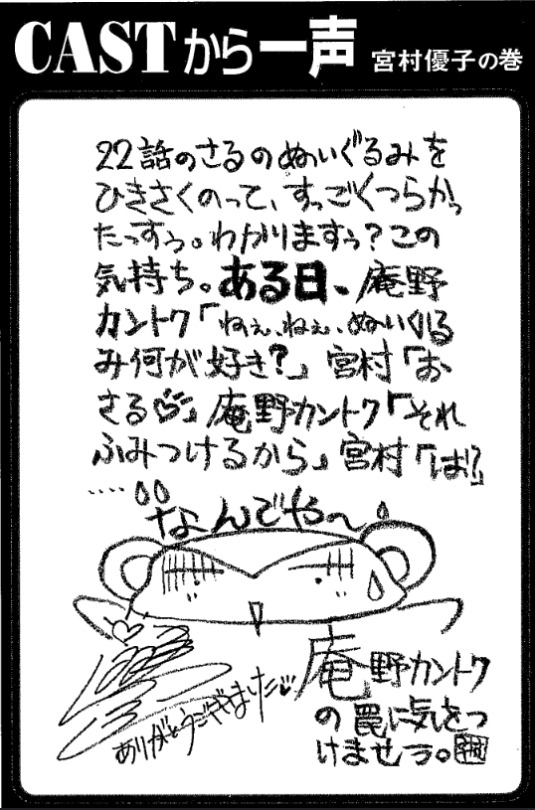 CASTから一声 宮村優子の巻
22話のさるのぬいぐるみを
ひきさくのって、すっごくつらかっ
たっすぅ。わかりますぅ?この
気持ち。ある日、庵野
カントク「ねぇ、ねぇ、ぬいぐる
み何が好き?」宮村「お
さる♡」庵野カントク「それ
ふみつけるから」宮村「は!?」
‥‥
なんでや〜
ありがとうございました♡
庵野カントク
の罠に気をつ
けませう。